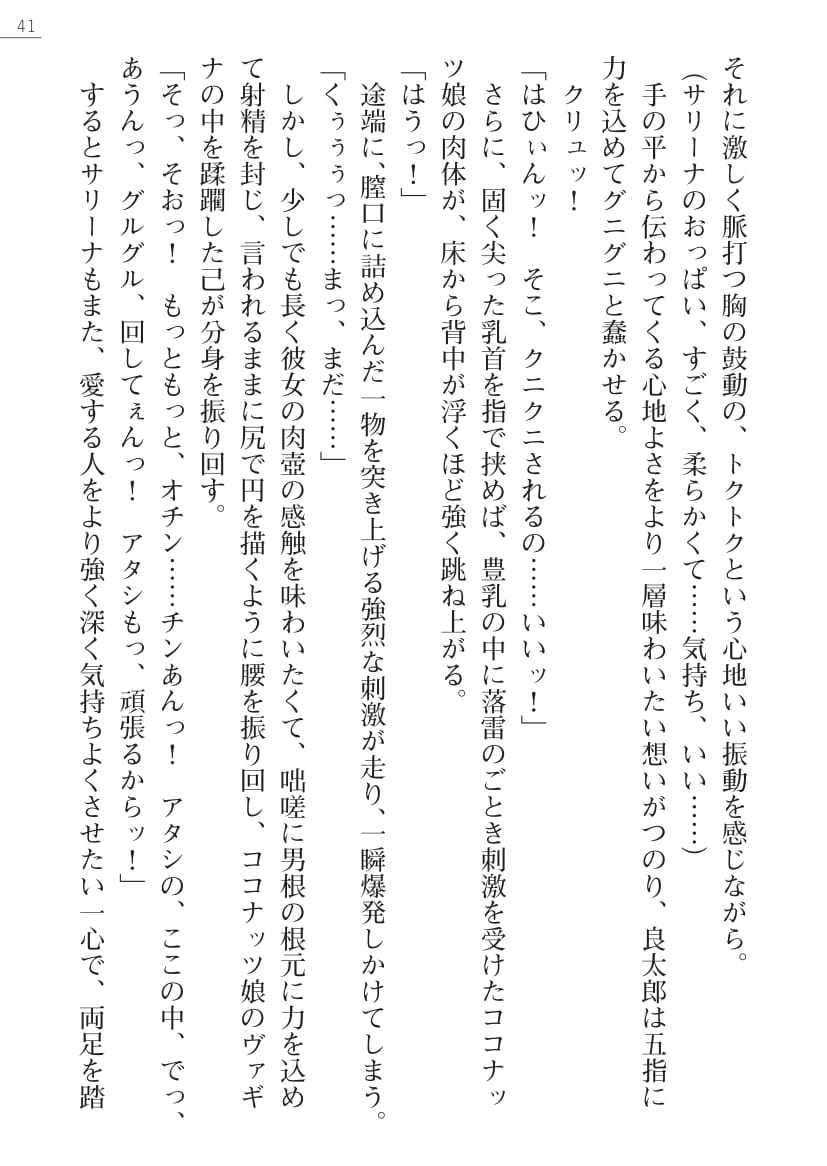 41
それに激しく脈打つ胸の鼓動の、トクトクという心地いい振動を感じながら。
（サリーナのおっぱい、すごく、柔らかくて……気持ち、いい……）
手の平から伝わってくる心地よさをより一層味わいたい想いがつのり、良太郎は五指に
力を込めてグニグニと蠢かせる。
クリュッ！
「はひぃんッ！　そこ、クニクニされるの……いいッ！」
さらに、固く尖った乳首を指で挟めば、豊乳の中に落雷のごとき刺激を受けたココナッ
ツ娘の肉体が、床から背中が浮くほど強く跳ね上がる。
「はうっ！」
途端に、膣口に詰め込んだ一物を突き上げる強烈な刺激が走り、一瞬爆発しかけてしまう。
「くぅぅぅっ……まっ、まだ……」
しかし、少しでも長く彼女の肉壺の感触を味わいたくて、咄嗟に男根の根元に力を込め
て射精を封じ、言われるままに尻で円を描くように腰を振り回し、ココナッツ娘のヴァギ
ナの中を蹂躙した己が分身を振り回す。
「そっ、そおっ！　もっともっと、オチン……チンあんっ！　アタシの、ここの中、でっ、
あうんっ、グルグル、回してぇんっ！　アタシもっ、頑張るからッ！」
するとサリーナもまた、愛する人をより強く深く気持ちよくさせたい一心で、両足を踏